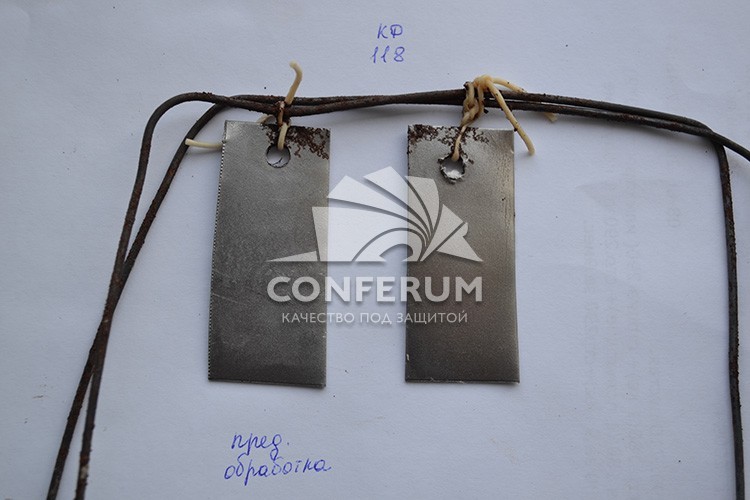 КФ
118
CONFERUM
КАЧЕСТВО ПОД ЗАЩИТОЙ
пред.
обработка